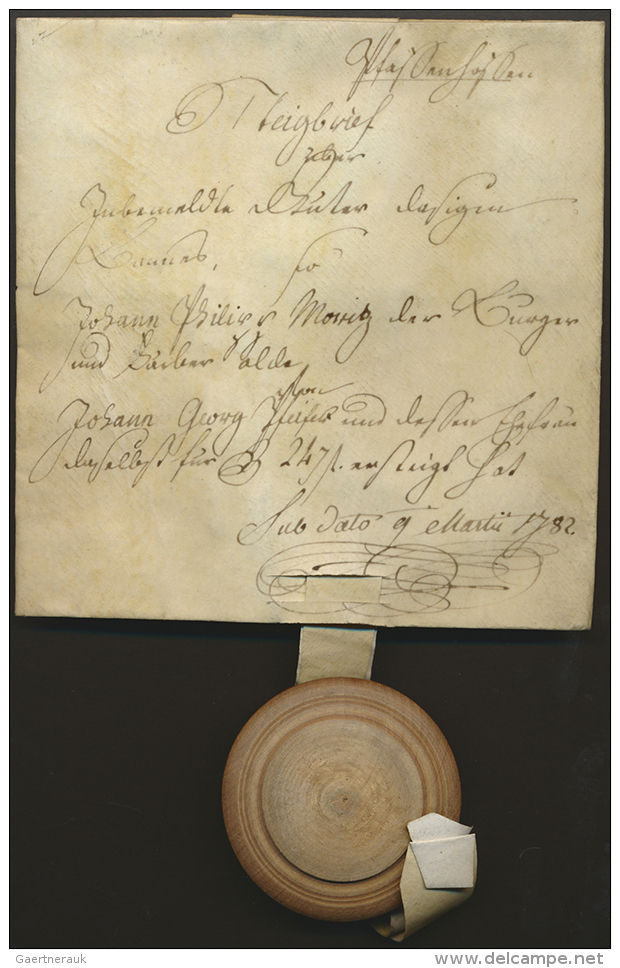 Pfaffenhoffen
Steigbrief
über
Inbemeldte Güter dasigen
Bannes, so
Johann Philipp Moritz der Burger
und Färber alda
von
Johann Georg Pfeifer und dessen Ehefrau
daselbst für 247 f. ersteigt hat
Sub dato 9 Martii 1782.
Gaertnerauk
www.delcampe.net